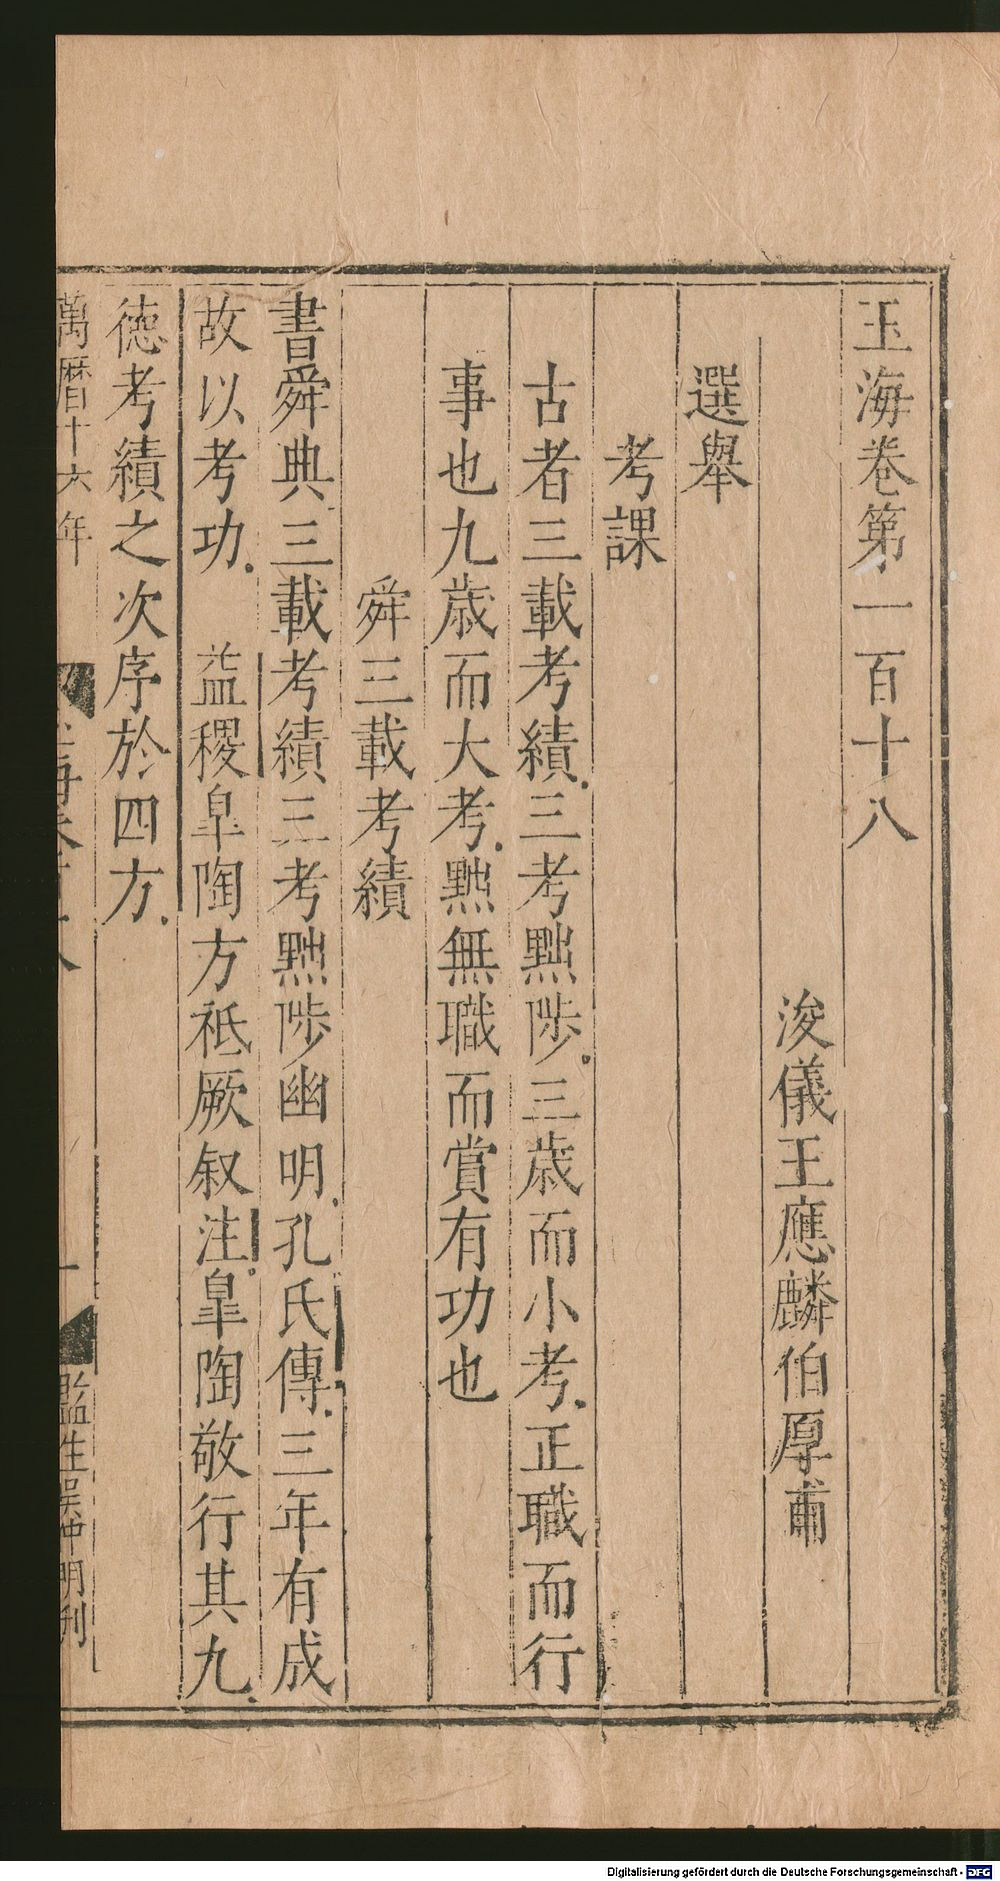 玉海卷第一百十八
浚儀王應麟伯厚甫
選舉
考課
古者三載考績三考黜陟三歲而小考正職而行
事也九歲而大考黜無職而賞有功也
舜三載考績
書舜典三載考績三考黜陟幽明孔氏傳三年有成
故以考功 益稷皐陶方祗厥叙注皐陶敬行其九
德考績之次序於四方
萬曆十六年
玉海卷百十八
一
監生吳仲明刊
Digitalisierung gefördert durch die Deutsche Forschungsgemeinschaft - DFG